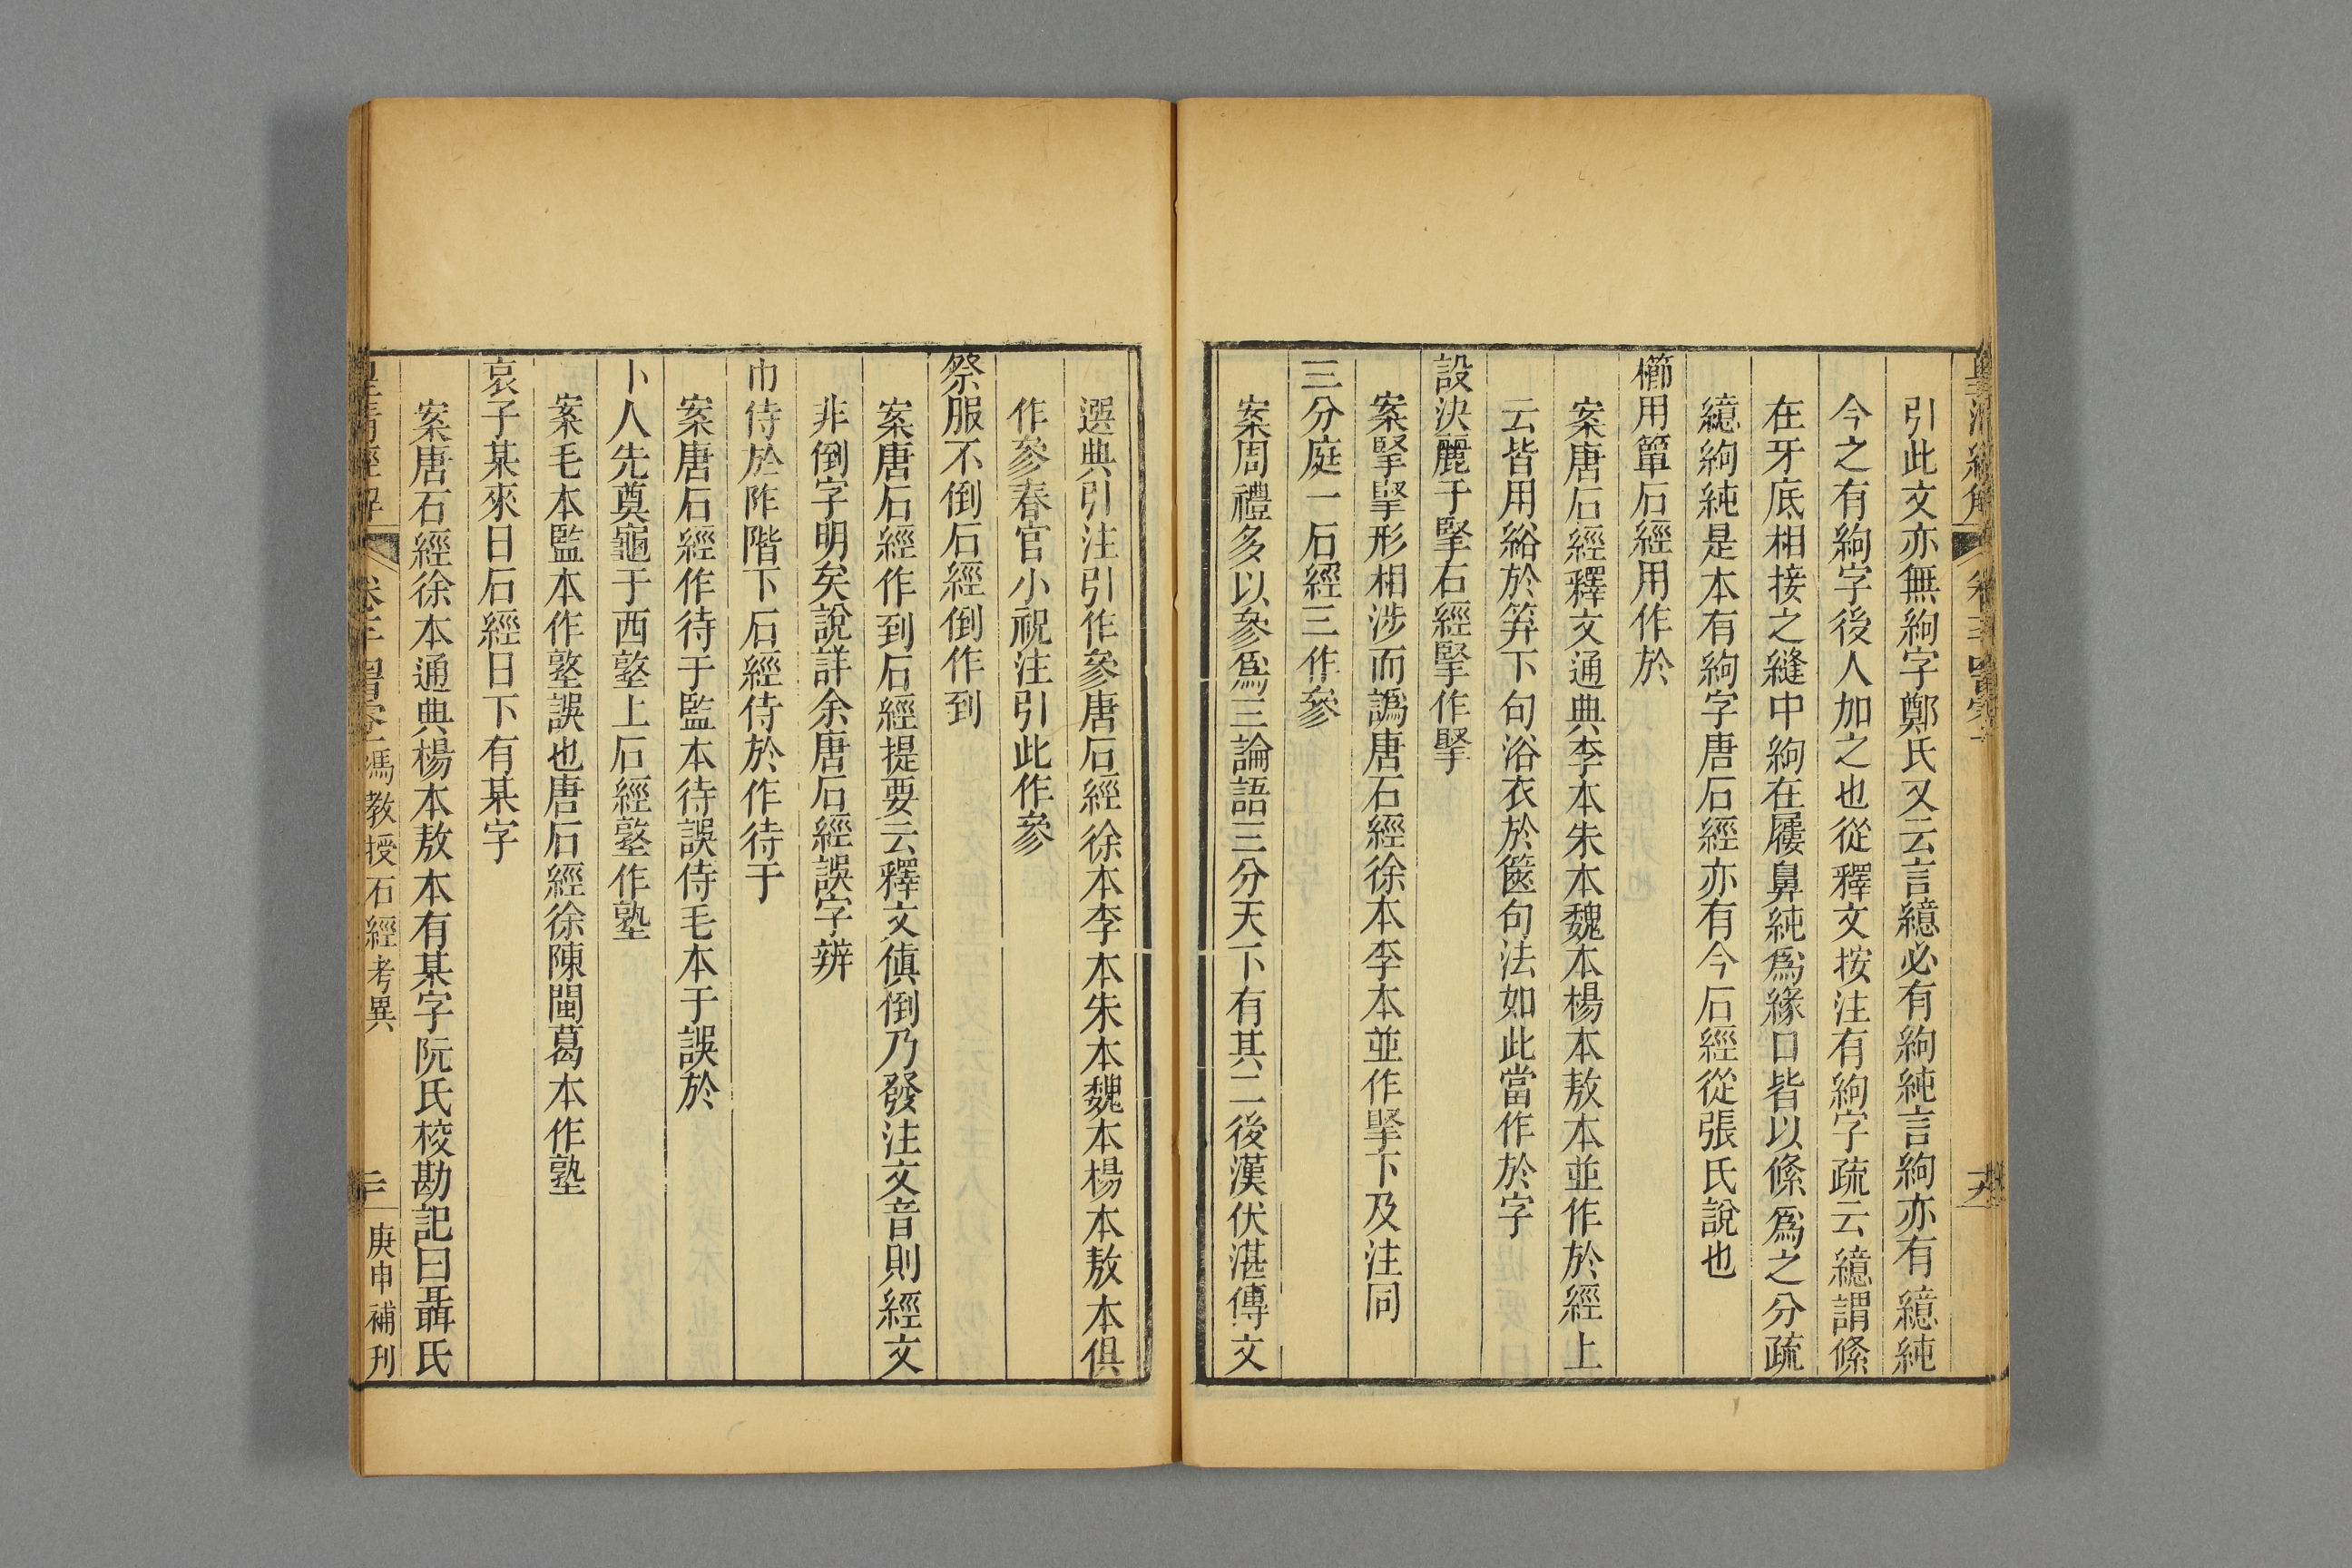 引此文亦無絇字鄭氏又云言繶必有絇純言絇亦有繶純
今之有絇字後人加之也從釋文按注有絇字疏云繶謂絛
在牙底相接之縫中絇在屨鼻純爲緣口皆以絛爲之分疏
繶絇純是本有絇字唐石經亦有今石經從張氏說也
櫛用簞石經用作於
案唐石經釋文通典李本朱本魏本楊本敖本並作於經上
云皆用綌於笲下句浴衣於篋句法如此當作於字
設決麗于掔石經掔作掔
案掔掔形相涉而譌唐石經徐本李本並作掔下及注同
三分庭一石經三作參
案周禮多以參爲三論語三分天下有其二後漢伏湛傳文
選典引注引作參唐石經徐本李本朱本魏本楊本敖本俱
作參春官小祝注引此作參
祭服不倒石經倒作到
案唐石經作到石經提要云釋文傎倒乃發注文音則經文
非倒字明矣說詳余唐石經誤字辨
巾侍於阼階下石經侍於作待于
案唐石經作待于監本待誤侍毛本于誤於
卜人先奠龜于西塾上石經塾作塾
案毛本監本作塾誤也唐石經徐陳閩葛本作塾
哀子某來日石經日下有某字
案唐石經徐本通典楊本敖本有某字阮氏校勘記曰聶氏
馮教授石經考異
庚申補刊